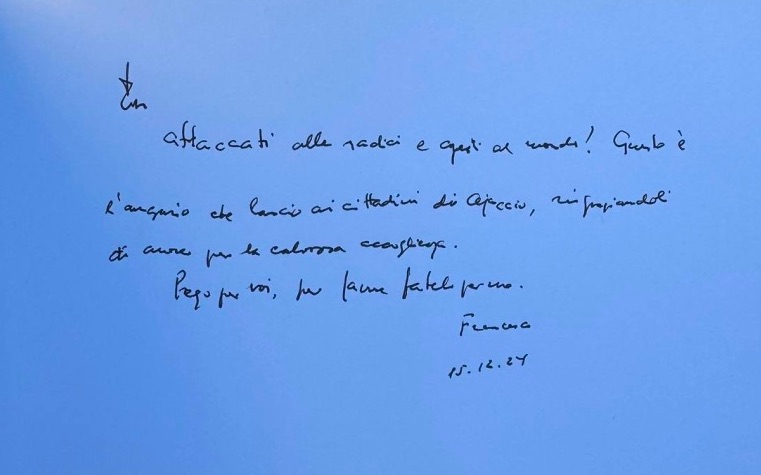 attaccati alle radici e aperti al mondo! Questo è
l'augurio che lascio ai cittadini di Ajaccio, ringraziandoli
di cuore per la calorosa accoglienza.
Prego per voi, per favore fatelo per me.
Francesco
15.12.24